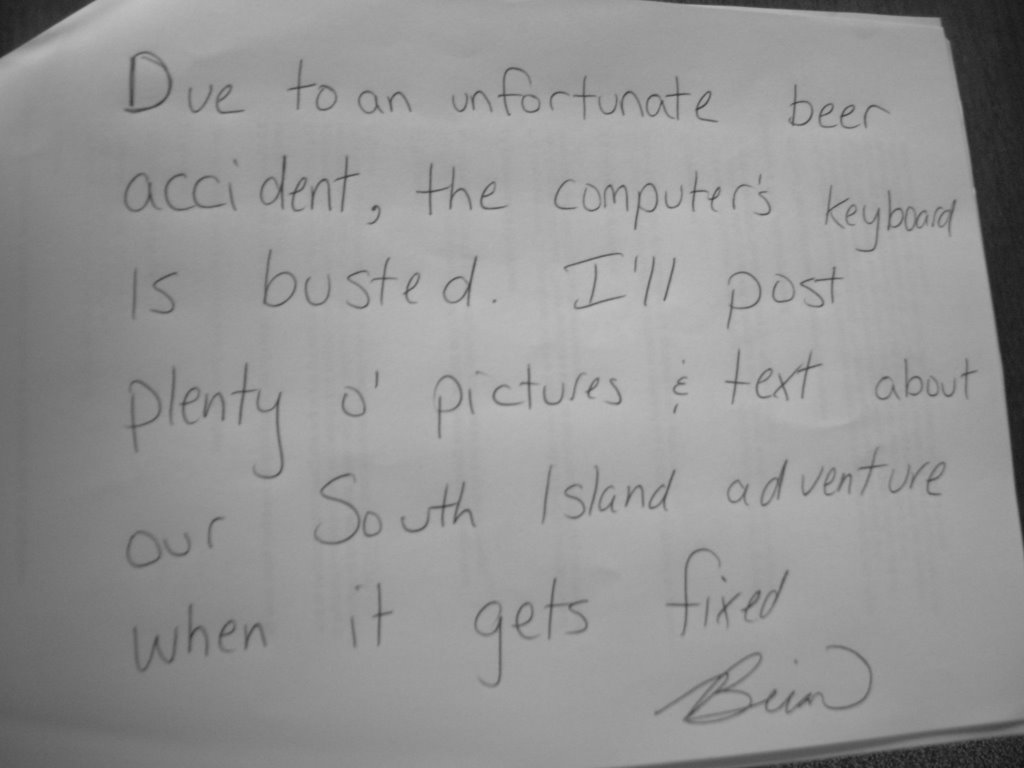 Due to an unfortunate beer
accident, the computer's keyboard
is busted. I'll post
plenty o' pictures & text about
our South Island adventure
when it gets fixed